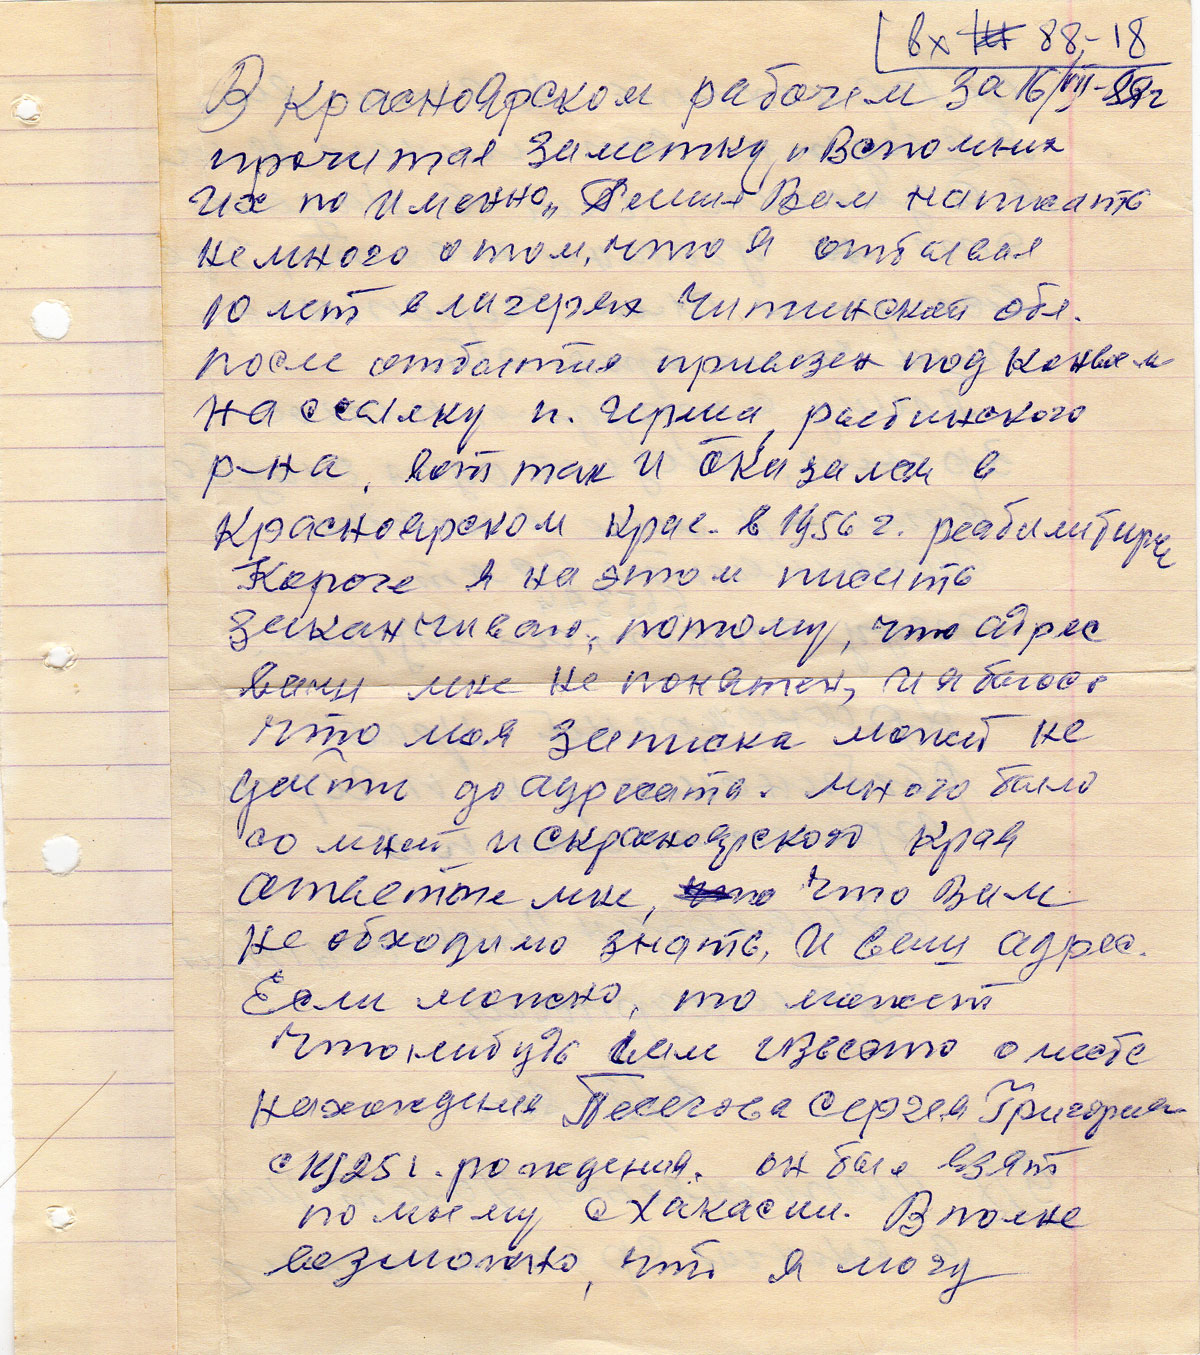 вх 88-18
В Красноярском рабочем за 16/VII-88г
прочитал заметку „Вспомним
их по именно„ Решил Вам написать
немного о том, что я отбывал
10 лет в лагерях Читинской обл.
после отбытия привезен под конвоем
на ссылку п. Ирша, рыбинского
р-на, вот так и оказался в
Красноярском крае. в 1956 г. реабилитир
Короче я на этом писать
заканчиваю, потому, что адрес
ваш мне не понятен, и я боюсь
что моя записка может не
дойти до адресата. много было
со мной и с красноярского края
ответьте мне, что Вам
необходимо знать, и ваш адрес.
Если можно, то может
что нибудь вам известно о место
нахождения Сергея Григорьев
с 1925 г. рождения. он был взят
по моему с Хакасии. Вполне
возможно, что я могу